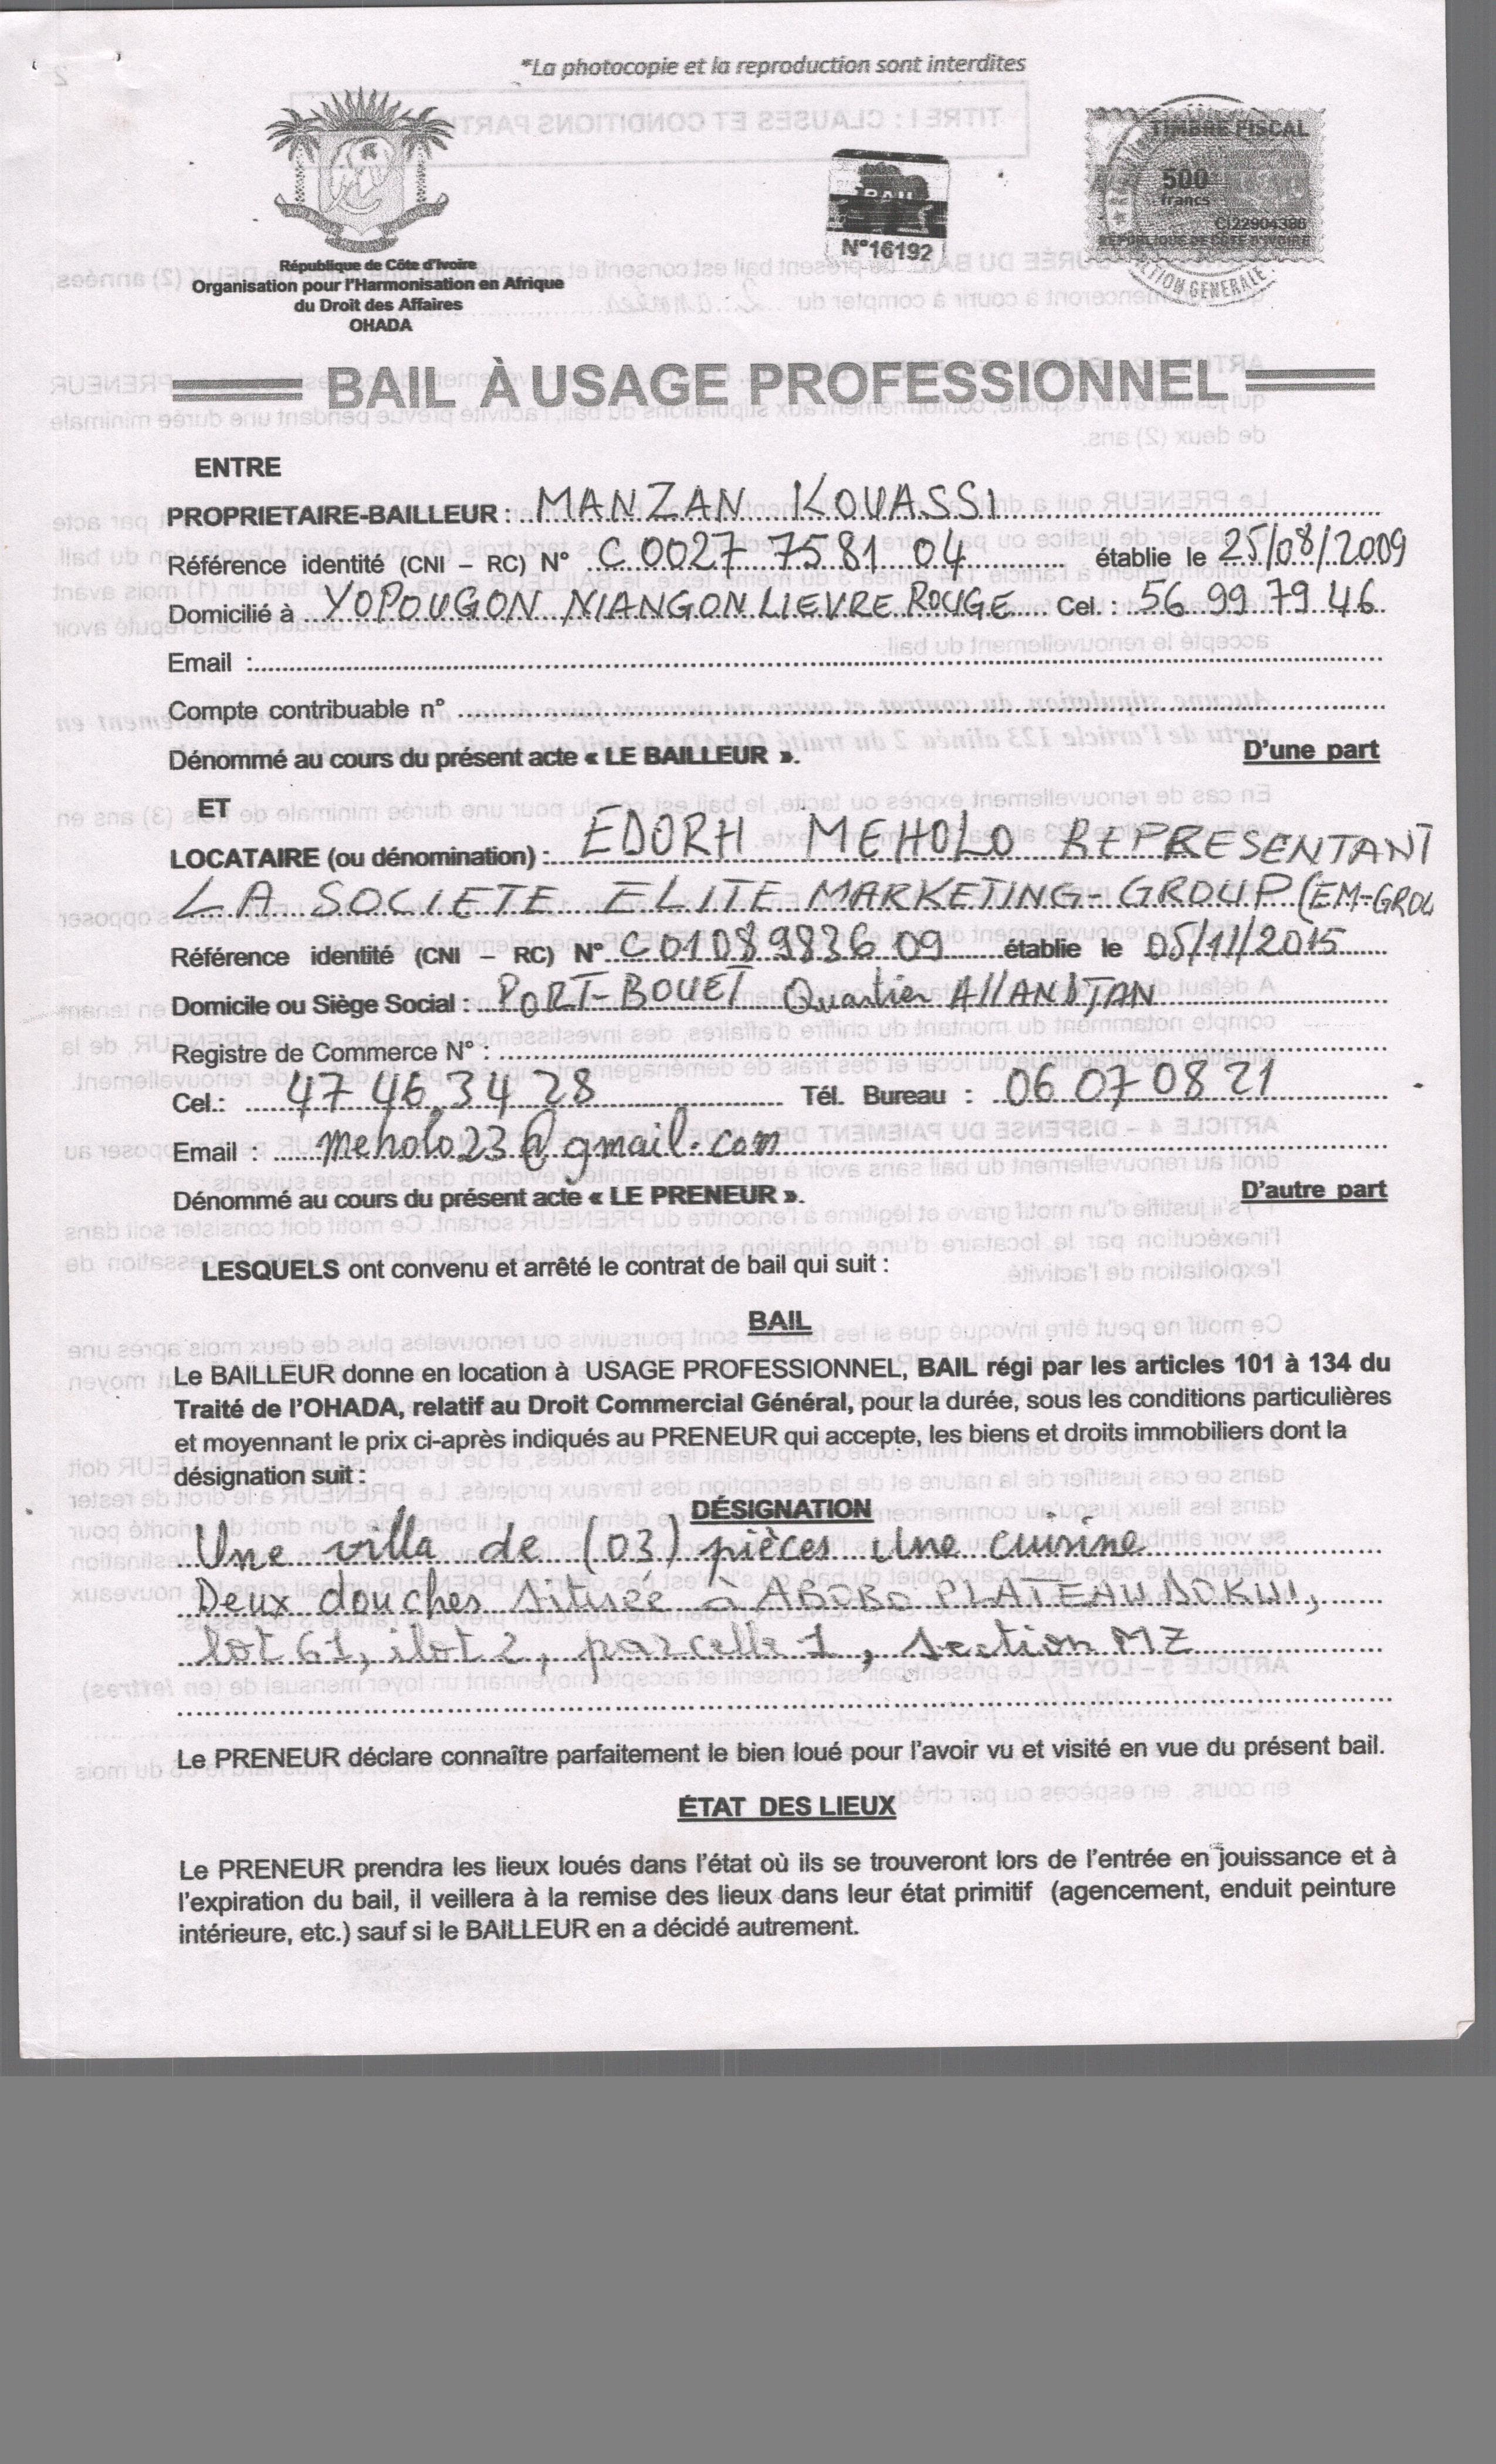 *La photocopie et la reproduction sont interdites
TIMBRE FISCAL
500
francs
CI22904386
REPUBLIQUE DE COTE D'IVOIRE
BAIL
N°16192
République de Côte d'Ivoire
Organisation pour l'Harmonisation en Afrique
du Droit des Affaires
OHADA
BAIL À USAGE PROFESSIONNEL
ENTRE
PROPRIETAIRE-BAILLEUR : MANZAN KOUASSI
Référence identité (CNI – RC) N° C 0027 7581 04 établie le 25/08/2009
Domicilié à YOPOUGON NIANGON LIEVRE ROUGE Cel. : 56 99 79 46
Email :
Compte contribuable n°
Dénommé au cours du présent acte « LE BAILLEUR ». D'une part
ET
LOCATAIRE (ou dénomination) : EDORH MEHOLO REPRESENTANT
LA SOCIETE ELITE MARKETING-GROUP (EM-GROU
Référence identité (CNI – RC) N° C01089836 09 établie le 05/11/2015
Domicile ou Siège Social : PORT-BOUET Quartier
Registre de Commerce N° :
Cel.: 47 46 34 28 Tél. Bureau : 06 07 08 21
Email : meholo23@gmail.com
Dénommé au cours du présent acte « LE PRENEUR ». D'autre part
LESQUELS ont convenu et arrêté le contrat de bail qui suit :
BAIL
Le BAILLEUR donne en location à USAGE PROFESSIONNEL, BAIL régi par les articles 101 à 134 du
Traité de l'OHADA, relatif au Droit Commercial Général, pour la durée, sous les conditions particulières
et moyennant le prix ci-après indiqués au PRENEUR qui accepte, les biens et droits immobiliers dont la
désignation suit :
DÉSIGNATION
Une villa de (03) pièces Une cuisine
Deux douches située à ABOBO PLATEAU DOKUI,
lot 61, ilot 2, parcelle 1, section MZ
Le PRENEUR déclare connaître parfaitement le bien loué pour l'avoir vu et visité en vue du présent bail.
ÉTAT DES LIEUX
Le PRENEUR prendra les lieux loués dans l'état où ils se trouveront lors de l'entrée en jouissance et à
l'expiration du bail, il veillera à la remise des lieux dans leur état primitif (agencement, enduit peinture
intérieure, etc.) sauf si le BAILLEUR en a décidé autrement.